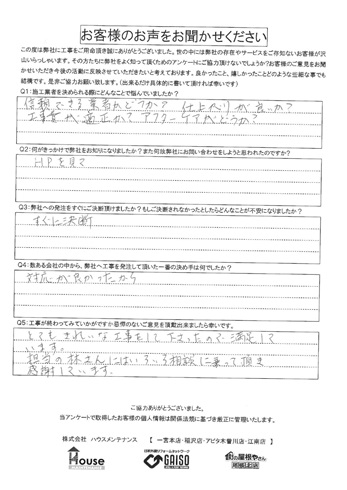 お客様のお声をお聞かせください
この度は弊社に工事をご用命頂き誠にありがとうございました。世の中には弊社の存在やサービスをご存知ないお客様が沢
山いらっしゃいます。その方たちに弊社をよく知って頂くためのアンケートにご協力頂けないでしょうか?お客様のご意見をお聞
かせいただき今後の活動に反映させていただきたいと考えております。良かったこと、嬉しかったことなどの些細な事でも
結構です。是非ご協力お願い致します。(出来るだけ具体的に書いて頂ければ幸いです)
Q1:施工業者を決められる際にどんなことで悩んでいましたか?
信頼できる業者かどうか? 仕上がりが良いか?
工事費が適正か? アフターケアがどうか?
Q2:何がきっかけで弊社をお知りになりましたか?また何故弊社にお問い合わせをしようと思われたのですか?
HPを見て
Q3:弊社への発注をすぐにご決断頂けましたか?もしご決断されなかったとしたらどんなことが不安になりましたか?
すぐに決断
Q4:数ある会社の中から、弊社へ工事を発注して頂いた一番の決め手は何でしたか?
対応が良かったから
Q5:工事が終わってみていかがですか忌憚のないご意見を頂戴出来ましたら幸いです。
とてもきれいな工事をして下さったので満足して
います。
担当の林さんにはいろいろ相談に乗って頂き
感謝しています。
ご協力ありがとうございました。
当アンケートで取得したお客様の個人情報は関係法規に基づき厳正に管理いたします。
株式会社 ハウスメンテナンス 【 一宮本店・稲沢店・アピタ木曽川店・江南店 】
House
GAISO
街の屋根やさん